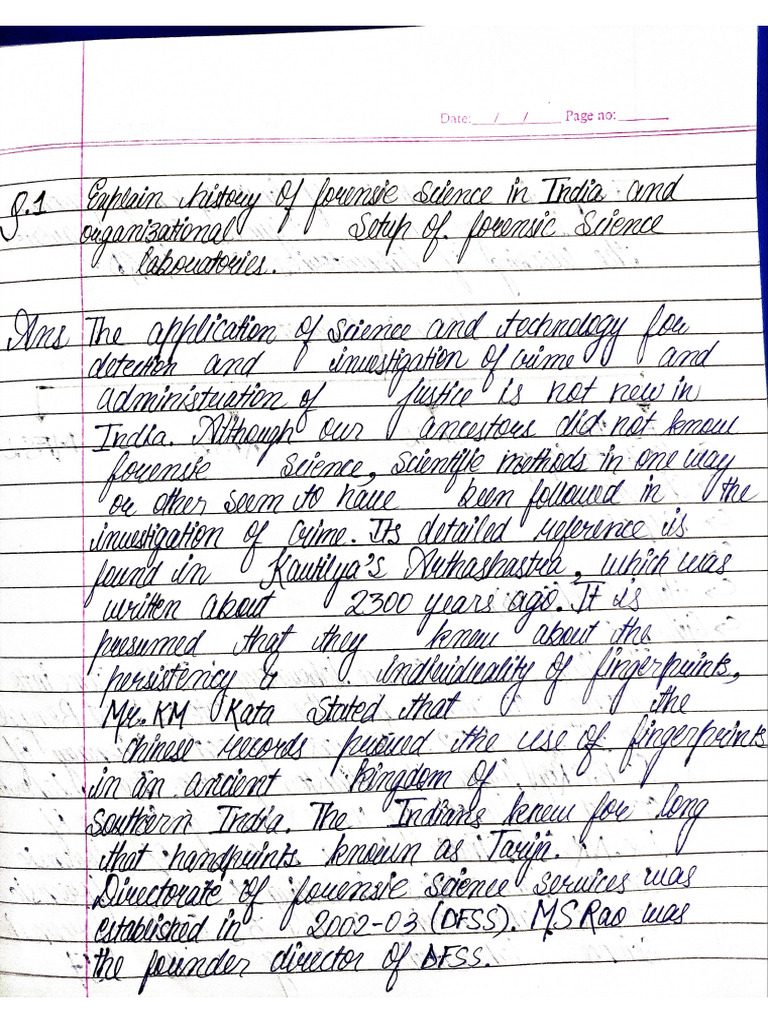 Date:___/___/____ Page no:______
Q.1 Explain history of forensic Science in India and
organizational Setup of forensic Science
laboratories.
Ans The application of Science and technology for
detection and investigation of crime and
administration of Justice is not new in
India. Although our ancestors did not know
forensic Science, Scientific methods in one way
or other seem to have been followed in the
investigation of crime. Its detailed reference is
found in Kautilya's Arthashastra, which was
written about 2300 years ago. It is
presumed that they knew about the
persistency & individuality of fingerprints,
Mr. KM Kata Stated that the
chinese records proved the use of fingerprints
in an ancient kingdom of
Southern India. The Indians knew for long
that handprints known as Tarija.
Directorate of forensic science services was
established in 2002-03 (DFSS). M.S Rao was
the founder director of DFSS.